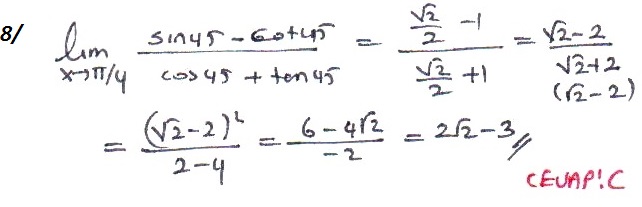 8/ lim x→π/4 (sin45 - cot45)/(cos45 + tan45) = (√2/2 - 1)/(√2/2 + 1) = (√2-2)/(√2+2) (√2-2)
= (√2-2)²/(2-4) = (6-4√2)/(-2) = 2√2-3 //
CEVAP!C